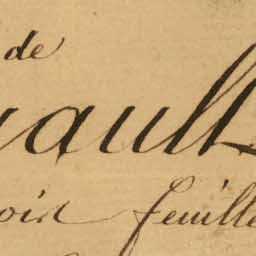 de
uault
oix feuille